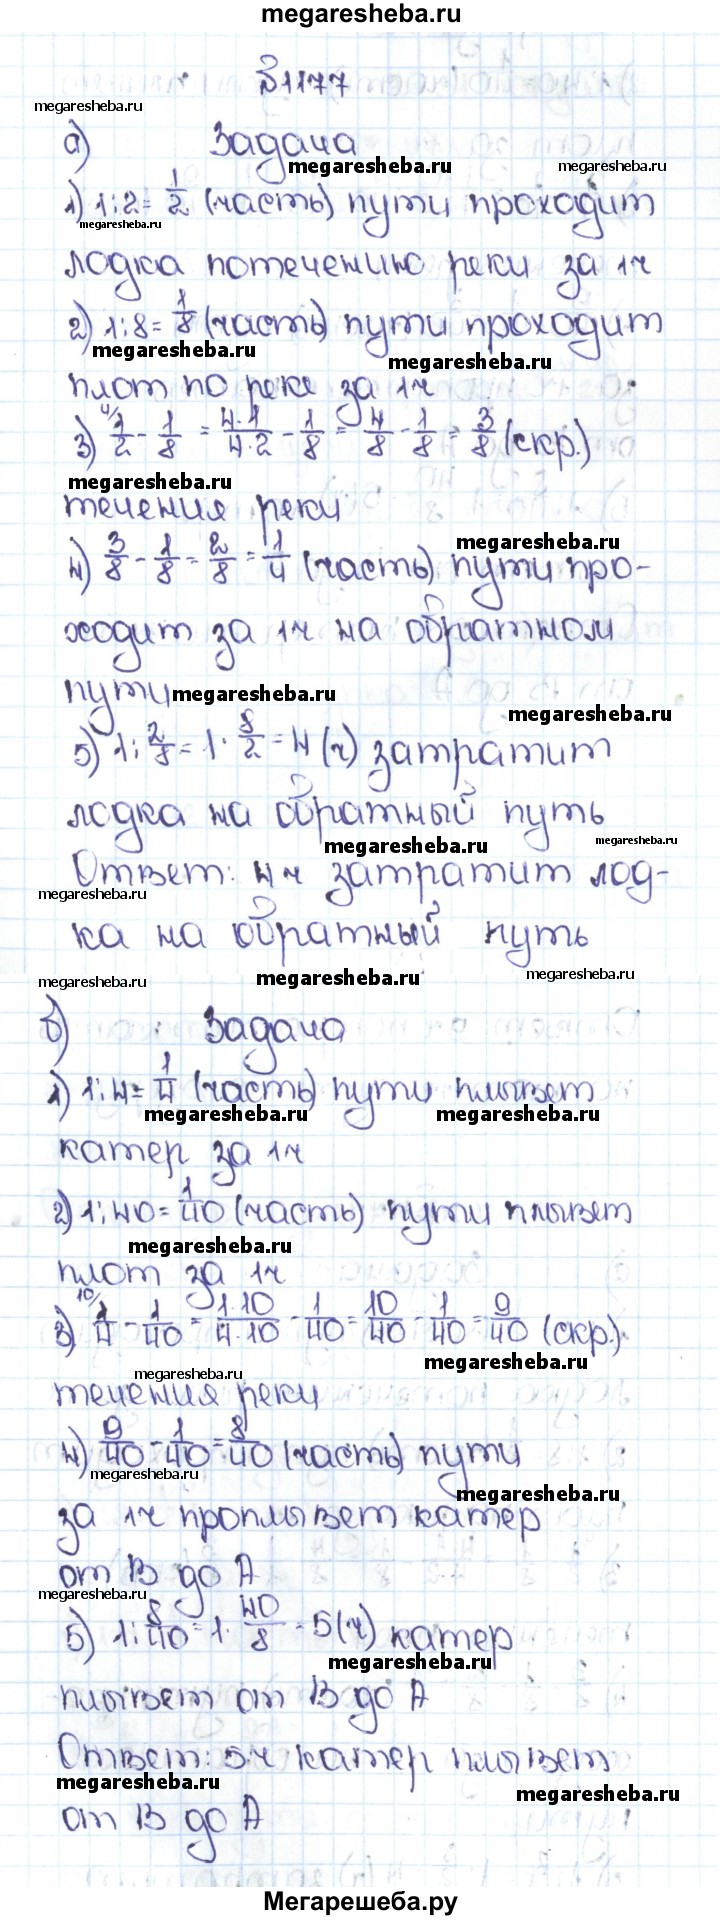 megaresheba.ru
№1177
megaresheba.ru
а) Задача
megaresheba.ru megaresheba.ru
1) 1:2=1/2 (часть) пути проходит
megaresheba.ru
лодка по течению реки за 1ч
2) 1:8=1/8 (часть) пути проходит
megaresheba.ru megaresheba.ru
плот по реке за 1ч
3) 4/ 1/2 - 1/8 = 4·1/4·2 - 1/8 = 4/8 - 1/8 = 3/8 (скр.)
megaresheba.ru
течения реки
megaresheba.ru
4) 3/8 - 1/8 = 2/8 = 1/4 (часть) пути про-
ходит за 1ч на обратном
пути megaresheba.ru
megaresheba.ru
5) 1:2/8=1·8/2=4(ч) затратит
лодка на обратный путь
megaresheba.ru megaresheba.ru
Ответ: 4ч затратит лод-
megaresheba.ru
ка на обратный путь
megaresheba.ru megaresheba.ru megaresheba.ru
б) Задача
1) 1:4=1/4 (часть) пути плывет
megaresheba.ru megaresheba.ru
катер за 1ч
2) 1:40=1/40 (часть) пути плывет
megaresheba.ru
плот за 1ч
3) 10/ 1/4 - 1/40 = 1·10/4·10 - 1/40 = 10/40 - 1/40 = 9/40 (скр.)
megaresheba.ru
megaresheba.ru
течения реки
4) 9/40 - 1/40 = 8/40 (часть) пути
megaresheba.ru
megaresheba.ru
за 1ч проплывет катер
от В до А
megaresheba.ru
5) 1:8/40=1·40/8=5(ч) катер
megaresheba.ru
плывет от В до А
Ответ: 5ч катер плывет
megaresheba.ru megaresheba.ru
от В до А
Мегарешеба.ру